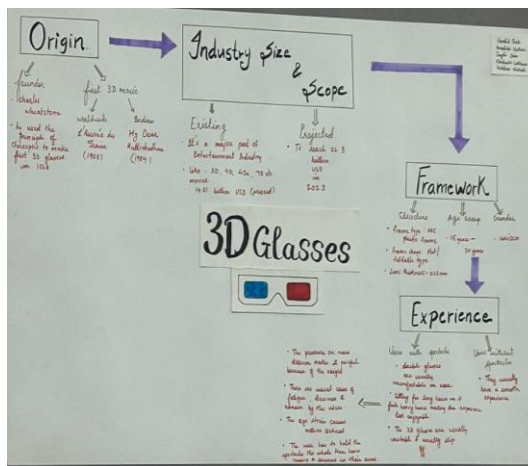 Origin
founder
Charles
Wheatstone
He used the
principle of
stereopsis to make
first 3D glasses
in
first 3D movie
worldwide
(1903)
Indian
My Dear
Kuttichathan
(1984)
Industry Size
&
Scope
Existing
It's a major part of
Entertainment Industry
Like - 3D, 4D,
movies
billion USD (present)
Projected
To reach
billion
USD
in
Framework
Structure
Frame type
plastic frame
Frame shape
foldable type
Lens thickness
Age Group
15 years -
30 years
Gender
unisex
3D Glasses
Experience
Users with spectacles
double glasses
are usually
uncomfortable to wear
Sitting for long hours in it
feels heavy hence making the experience
less enjoyable
The 3D glasses are usually
unstable & usually slip
off
Users without
spectacles
They usually
have a smooth
experience
The pressure on nose
makes it painful
because of the weight
There are usual cases of
fatigue, dizziness &
by the users
The eye strain causes
The user has to hold the
spectacles the whole time hence